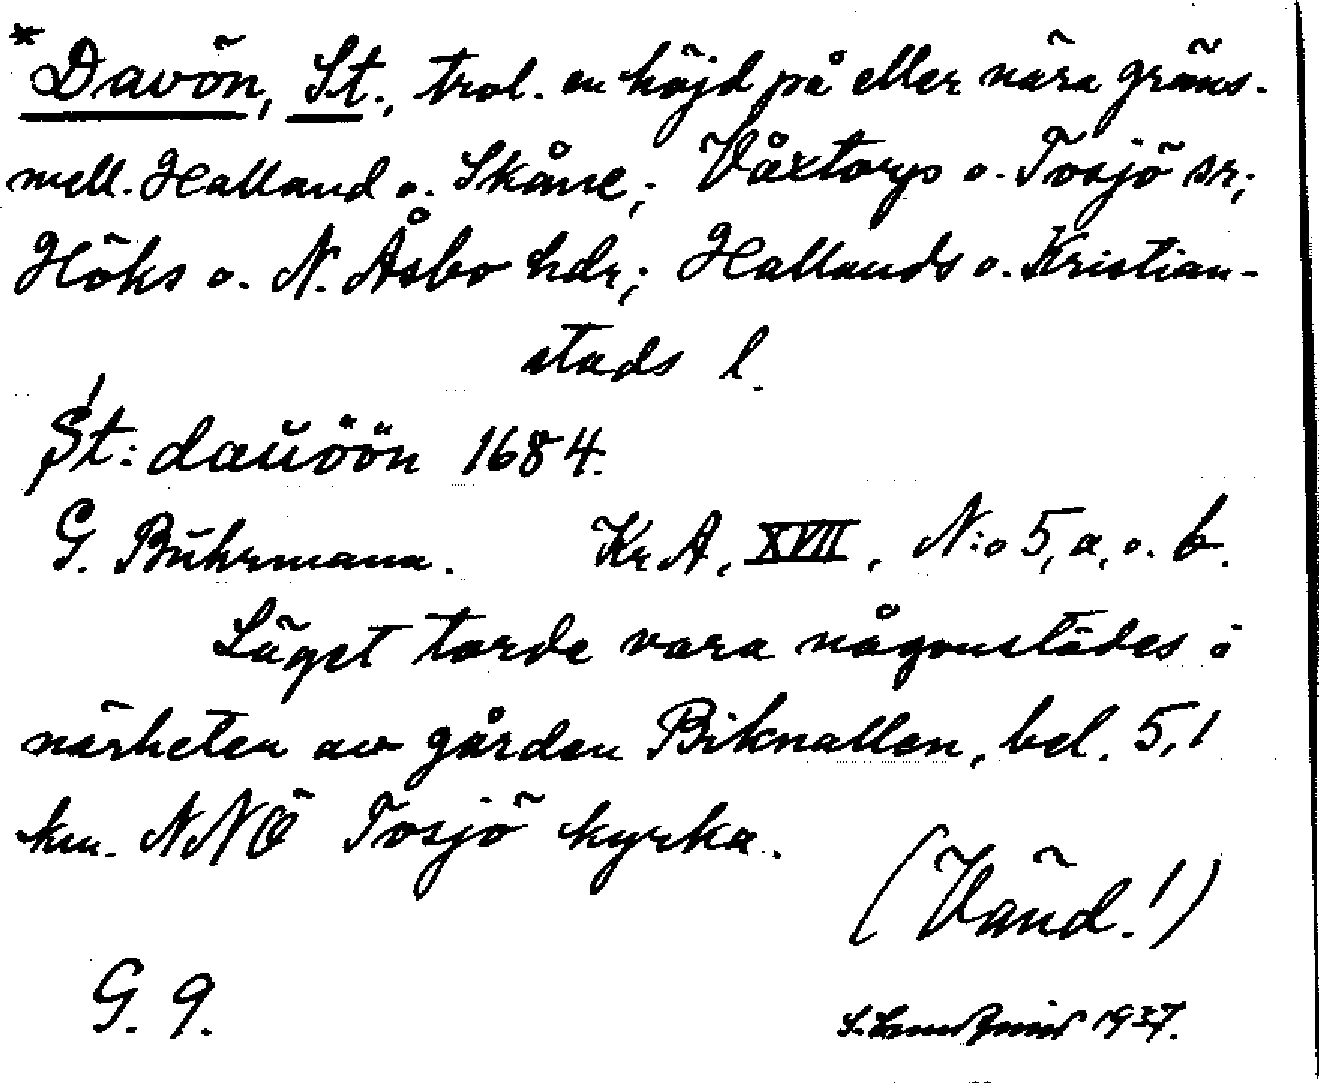 *Davön, St., trol. en höjd på eller nära gräns.
mell. Halland o. Skåne; Våxtorps o. Tosjö sr;
Höks o. N. Åsbo hdr; Hallands o. Kristian-
stads l.
St: dauöön 1684.
G. Buhrmann. Kr. A, XVII, N:o 5, a, o. b.
Läget torde vara någonstädes i
närheten av gården Biknallen, bel. 5,1
km. NNÖ Tosjö kyrka.
(Vänd!)
G. 9.
1937.